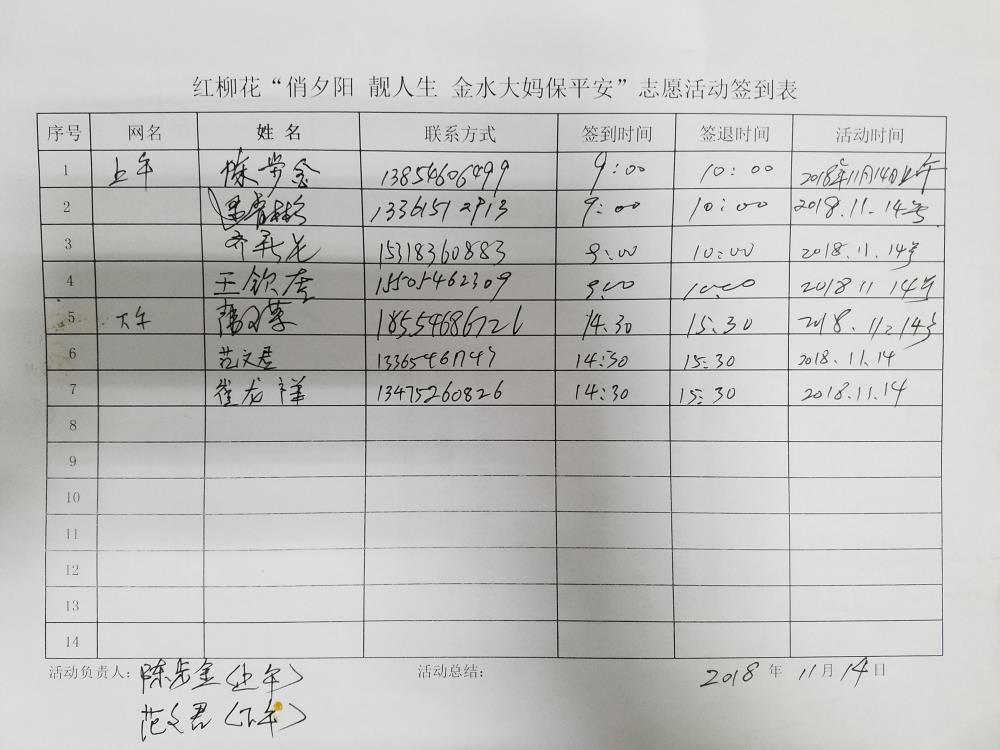 红柳花“俏夕阳 靓人生 金水大妈保平安”志愿活动签到表
序号 网名 姓名 联系方式 签到时间 签退时间 活动时间
1 上午 陈步金 13854606499 9:00 10:00 2018年11月14日上午
2 13361512913 9:00 10:00 2018.11.14号
3 15318360883 9:00 10:00 2018.11.14号
4 王钦 15505462309 9:00 10:00 2018 11 14号
5 下午 18554686726 14.30 15:30 2018.11.14号
6 范文君 14:30 15:30 2018.11.14
7 崔龙祥 13475260826 14:30 15:30 2018.11.14
8
9
10
11
12
13
14
活动负责人: 陈步金(上午) 活动总结: 2018年 11月14日
范文君(下午)